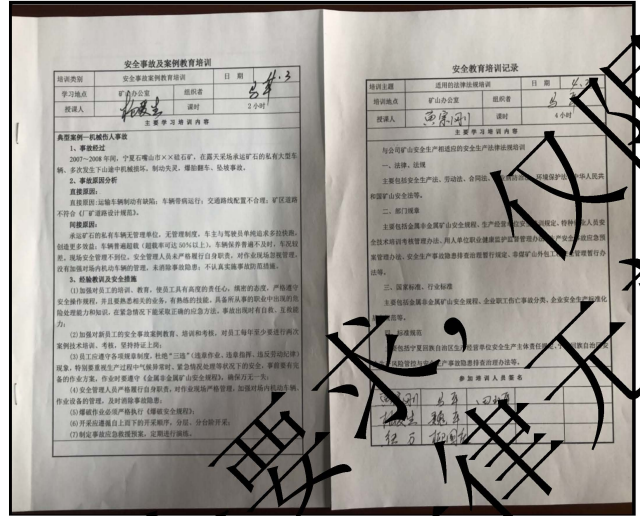 安全事故及案例教育培训
培训类别 安全事故案例教育培训 日期 4.3
学习地点 矿山办公室 组织者 马军
授课人 课时 2小时
主要学习培训内容
典型案例一机械伤人事故
1、事故经过
2007～2008年间，宁夏石嘴山市××硅石矿，在露天采场承运矿石的私有大型车
辆，多次发生下山途中机械损坏、制动失灵、爆胎翻车、坠坡事故。
2、事故原因分析
直接原因：
直接原因:运输车辆制动有缺陷；车辆带病运行；交通路线配置不合理；矿区道路
不符合《厂矿道路设计规范》。
间接原因：
承运矿石的私有车辆无管理单位，无管理制度，车主与驾驶员单纯追求多拉快跑，
创造更多效益；车辆普遍超载（超载率可达50%以上），车辆保养普遍不及时，车况较
差，现场安全管理不到位，安全管理人员未严格履行自身职责，对作业现场忽视管理，
没有加强对场内机动车辆的管理，未消除事故隐患，不认真实施事故防范措施。
3、经验教训及安全措施
(1)加强对员工的培训、教育，使员工具有高度的责任心、缜密的态度，严格遵守
安全操作规程，并且要熟悉相关的业务，有熟练的技能，具备所从事的职业中出现的危
险处理能力和知识，在紧急情况下能采取正确的应急方法，事故出现时有自救、互救能
力；
(2)加强对新员工的安全事故案例教育、培训和考核，对员工每年至少要进行两次
案例技术培训、考核，坚持持证上岗；
(3)员工应遵守各项规章制度，杜绝“三违”(违章作业、违章指挥、违反劳动纪律)
现象，特别要重视生产过程中气候异常时、紧急情况处理等状况下的安全，事前要有完
备的作业方案，作业时要遵守《金属非金属矿山安全规程》，确保万无一失；
(4)安全管理人员严格履行自身职责，对作业现场严格管理，加强对场内机动车辆、
作业设备的管理，及时消除事故隐患；
(5)爆破作业必须严格执行《爆破安全规程》；
(6)开采应遵循自上而下的开采顺序，分层、分台阶开采；
(7)制定事故应急救援预案，定期进行演练。
安全教育培训记录
培训主题 适用的法律法规培训 日期 4.3
培训地点 矿山办公室 组织者 马军
授课人 课时 4小时
主要学习培训内容
与公司矿山安全生产相适应的安全生产法律法规培训
一、法律、法规
主要包括安全生产法、劳动法、合同法、环境保护法、中华人民共
和国矿山安全法等。
二、部门规章
主要包括金属非金属矿山安全规程、生产经营单位安全培训规定、特种作业人员安
全技术培训考核管理办法、用人单位职业健康监护监督管理办法、生产安全事故应急预
案管理办法、安全生产事故隐患排查治理暂行规定、非煤矿山外包工程安全管理暂行办
法等。
三、国家标准、行业标准
主要包括金属非金属矿山安全规程、企业职工伤亡事故分类、企业安全生产标准化
规范等。
四、标准规范
主要包括宁夏回族自治区生产经营单位安全生产主体责任规定、宁夏回族自治区安
风险管控与安全生产事故隐患排查治理办法等。
参加培训人员签名
马军
仅
要求，
准无